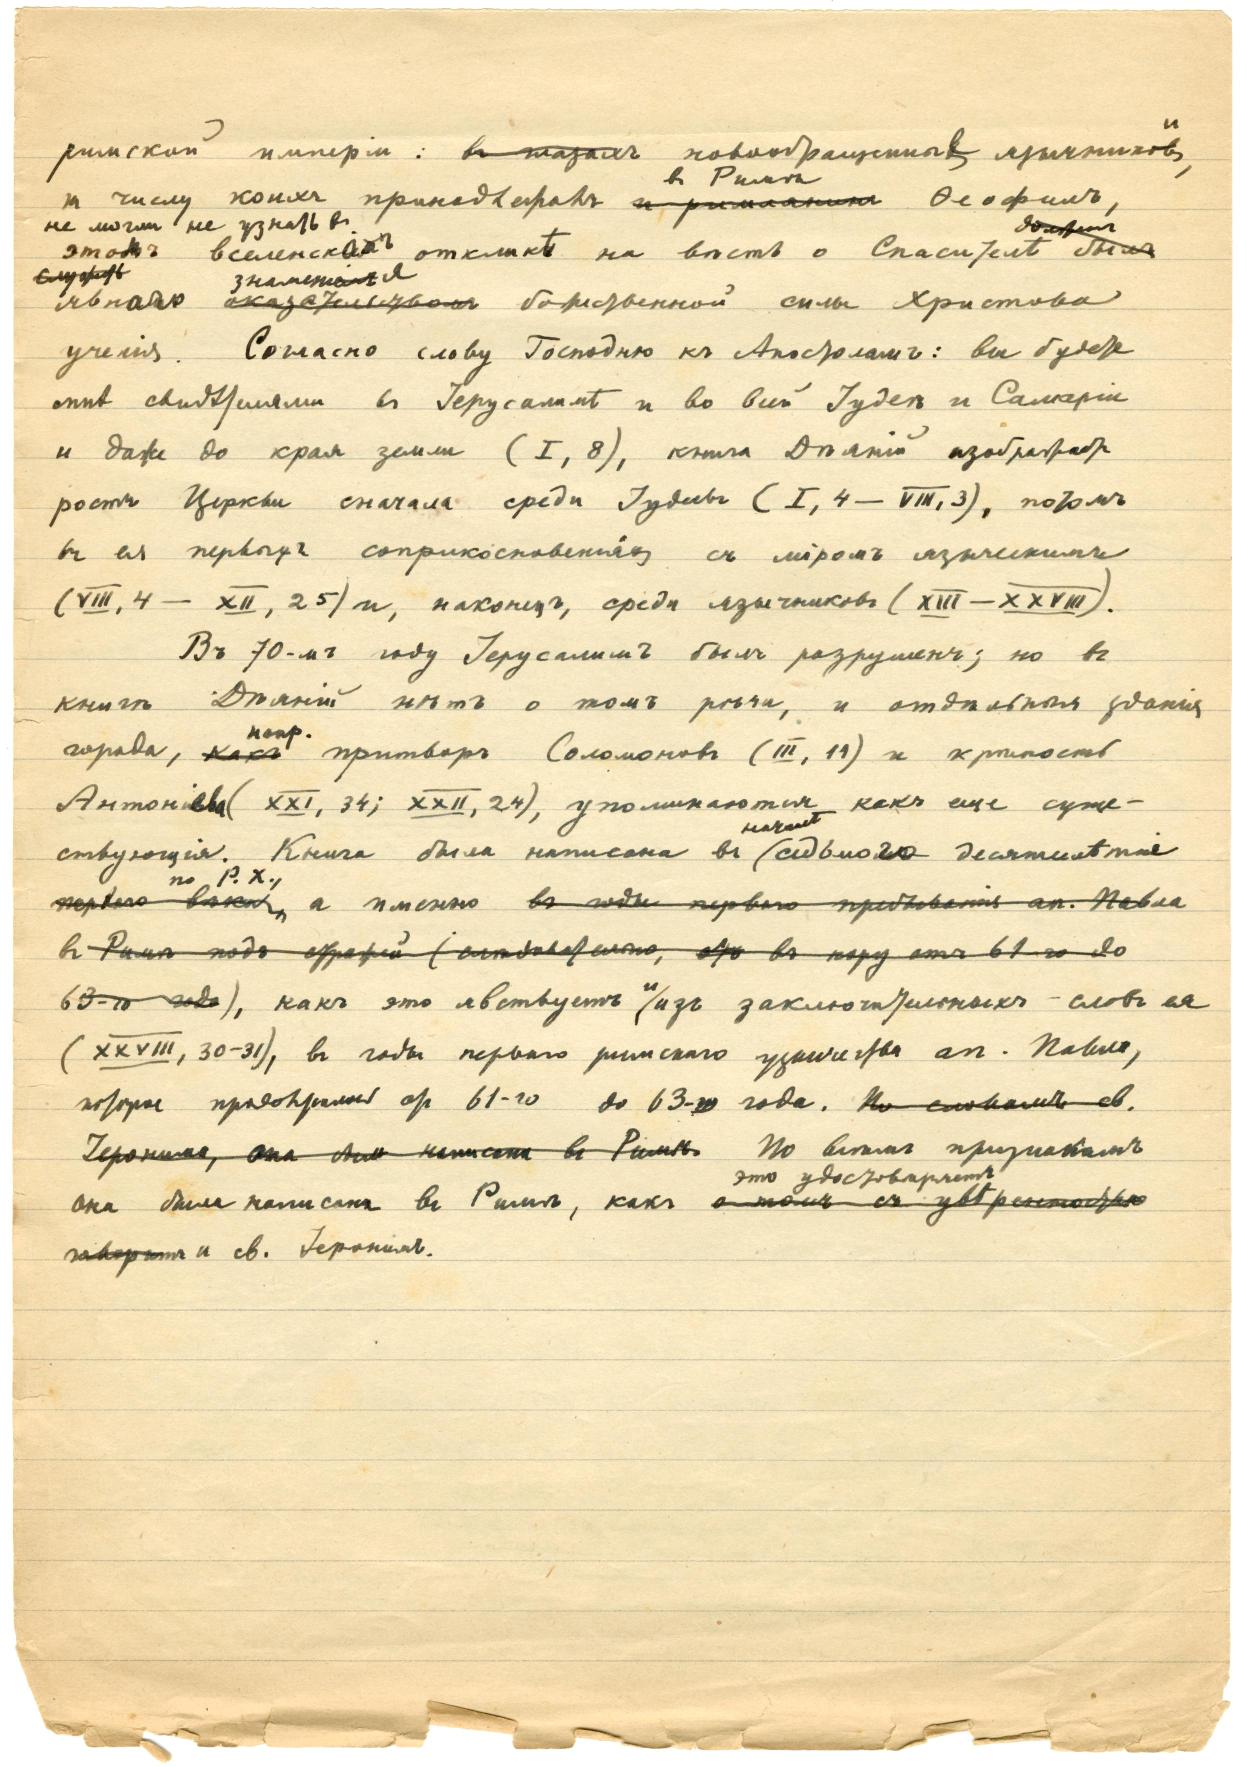 римской имперіи: въ глазахъ новообращенныхъ язычниковъ, и
въ Римѣ
къ числу коихъ принадлежалъ и римлянинъ Ѳеофилъ,
не могли не узнать въ
этомъ вселенскомъ откликѣ на вѣсть о Спасителѣ былъ
долженъ
служить знаменія
явнаго доказательствомъ божественной силы Христова
ученія. Согласно слову Господню къ Апостоламъ: вы будете
мнѣ свидѣтелями въ Іерусалимѣ и во всей Іудеѣ и Самаріи
и даже до края земли (I, 8), книга Дѣяній изображаетъ
ростъ Церкви сначала среди Іудеевъ (I, 4 — VIII, 3), потомъ
въ ея первыхъ соприкосновеніяхъ съ міромъ языческимъ
(VIII, 4 — XII, 25) и, наконецъ, среди язычниковъ (XIII — XXVIII).
Въ 70-мъ году Іерусалимъ былъ разрушенъ; но въ
книгѣ Дѣяній нѣтъ о томъ рѣчи, и отдѣльныя зданія
напр.
города, какъ притворъ Соломоновъ (III, 11) и крѣпость
Антоніева (XXI, 34; XXII, 24), упоминаются какъ еще суще-
началѣ
ствующія. Книга была написана въ седьмого десятилѣтія
по Р. Х.,
перваго вѣка, а именно въ годы перваго пребыванія ап. Павла
въ Римѣ подъ стражей (слѣдовательно, въ пору отъ 61-го до
63-го года), какъ это явствуетъ и изъ заключительныхъ словъ ея
(XXVIII, 30-31), въ годы перваго римскаго узничества ап. Павла,
которое продолжалось отъ 61-го до 63-го года. По словамъ св.
Іеронима, она была написана въ Римѣ. По всѣмъ признакамъ
это удостовѣряетъ
она была написана въ Римѣ, какъ о томъ съ увѣренностью
говоритъ и св. Іеронимъ.